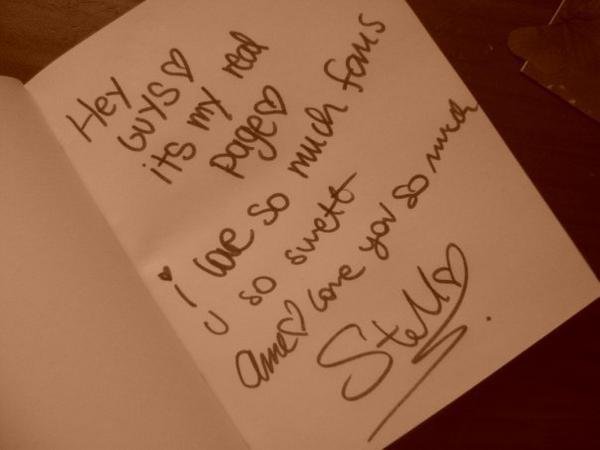 Hey
Guys♡
its my real
page♡
i love so much fans
u so swett
ame♡ love you so much
Stella♡